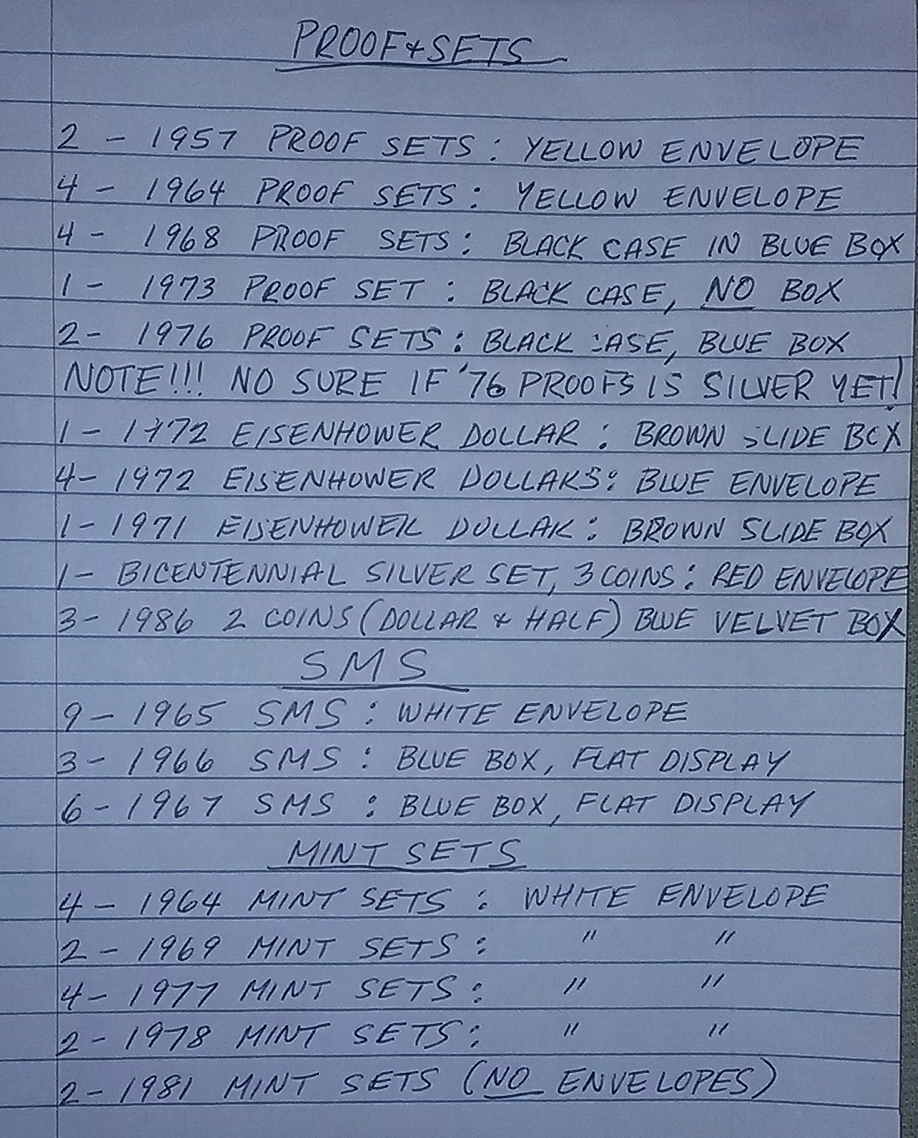 PROOF + SETS
2 - 1957 PROOF SETS : YELLOW ENVELOPE
4 - 1964 PROOF SETS : YELLOW ENVELOPE
4 - 1968 PROOF SETS : BLACK CASE IN BLUE BOX
1 - 1973 PROOF SET : BLACK CASE, NO BOX
2 - 1976 PROOF SETS : BLACK CASE, BLUE BOX
NOTE!!! NO SURE IF '76 PROOFS IS SILVER YET!
1 - 1972 EISENHOWER DOLLAR : BROWN SLIDE BOX
4 - 1972 EISENHOWER DOLLARS : BLUE ENVELOPE
1 - 1971 EISENHOWER DOLLAR : BROWN SLIDE BOX
1 - BICENTENNIAL SILVER SET, 3 COINS : RED ENVELOPE
3 - 1986 2 COINS (DOLLAR & HALF) BLUE VELVET BOX
SMS
9 - 1965 SMS : WHITE ENVELOPE
3 - 1966 SMS : BLUE BOX, FLAT DISPLAY
6 - 1967 SMS : BLUE BOX, FLAT DISPLAY
MINT SETS
4 - 1964 MINT SETS : WHITE ENVELOPE
2 - 1969 MINT SETS : " "
4 - 1977 MINT SETS : " "
2 - 1978 MINT SETS : " "
2 - 1981 MINT SETS (NO ENVELOPES)